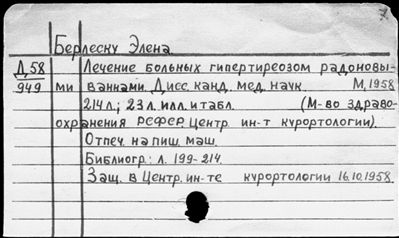 Берлеску Элена
Д 58 Лечение больных гипертиреозом радоновы-
949 ми ваннами. Дисс. канд. мед. наук. М., 1958
214 л.; 23 л. илл. и табл. (М-во здраво-
охранения РСФСР. Центр. ин-т курортологии).
Отпеч. на пиш. маш.
Библиогр.: л. 199-214.
Защ. в Центр. ин-те курортологии 16.10.1958